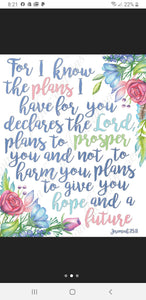 8:21
22%
For I know
the plans I
have for you
declares the Lord,
plans to prosper
you and not to
harm you, plans
to give you
hope and a
future
Jeremiah 29:11